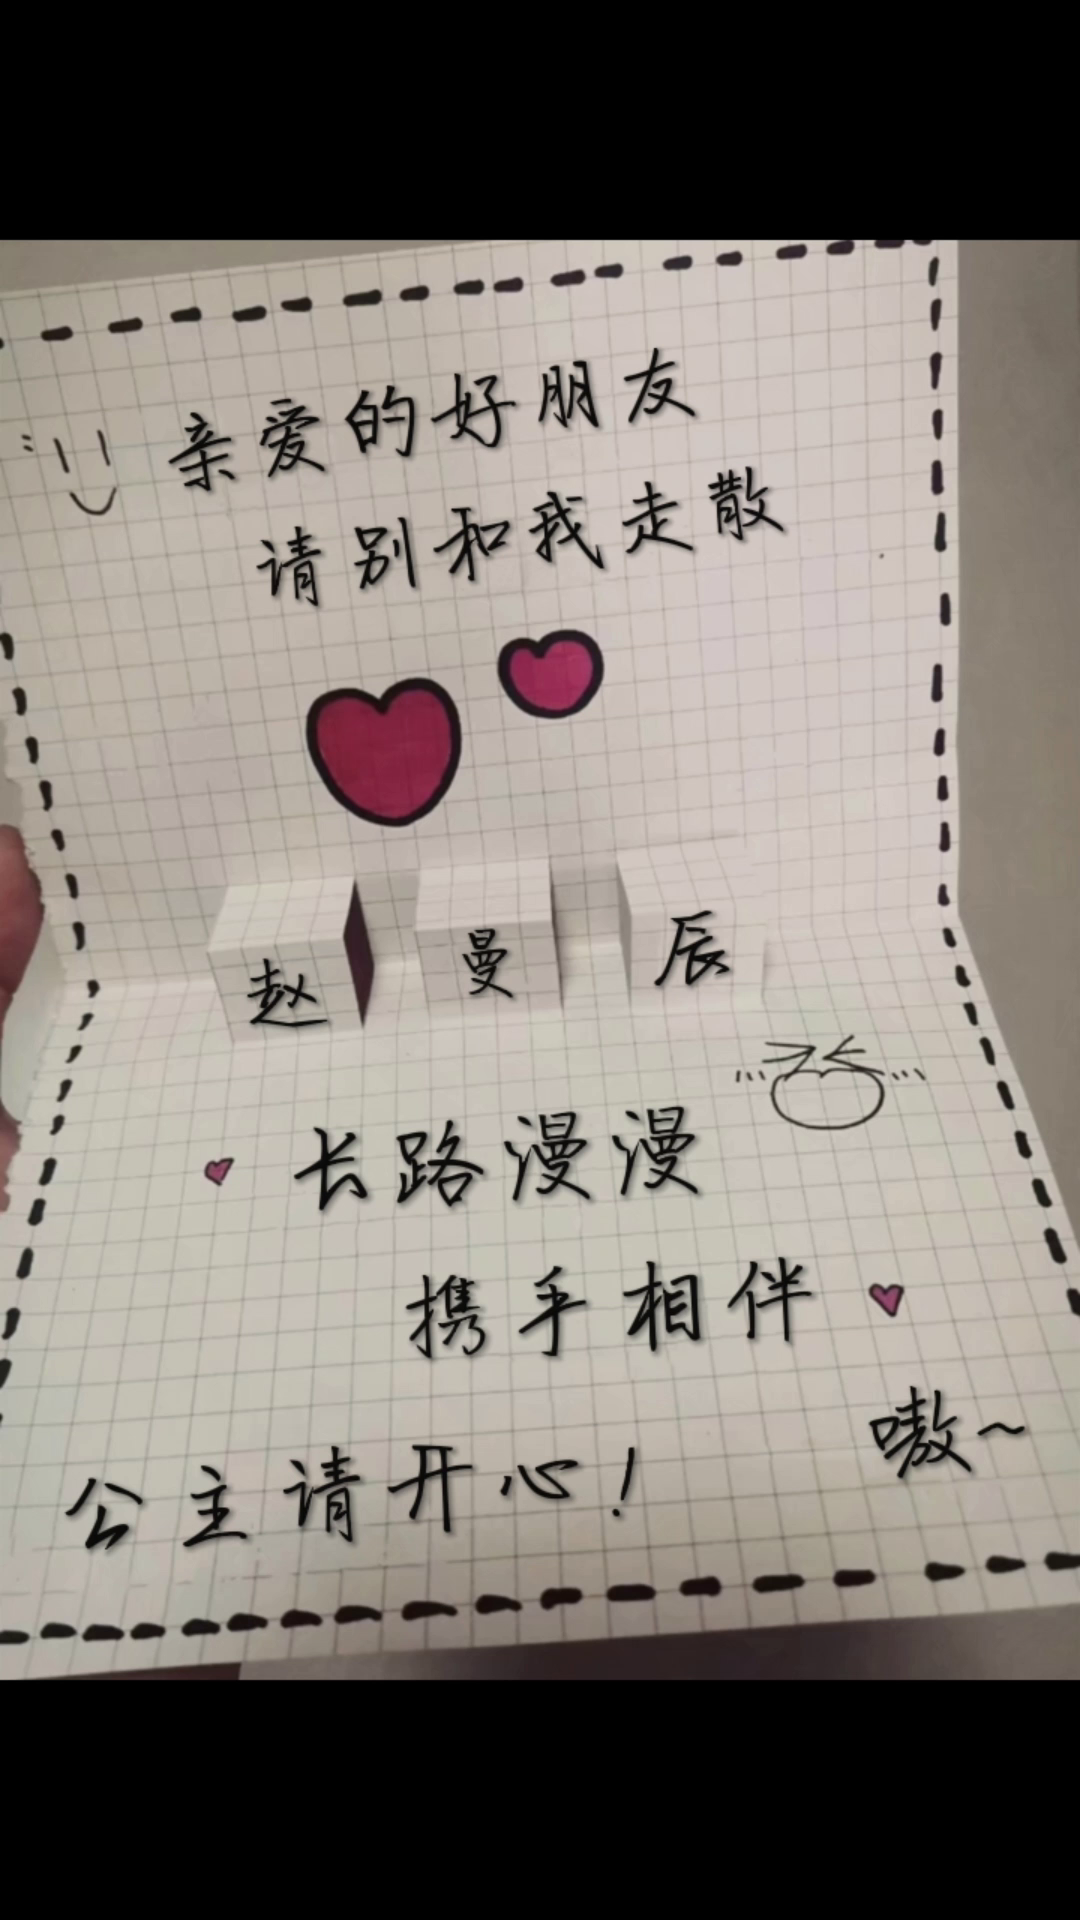 亲爱的好朋友
请别和我走散
赵 曼 辰
长路漫漫
携手相伴
嗷~
公主请开心!